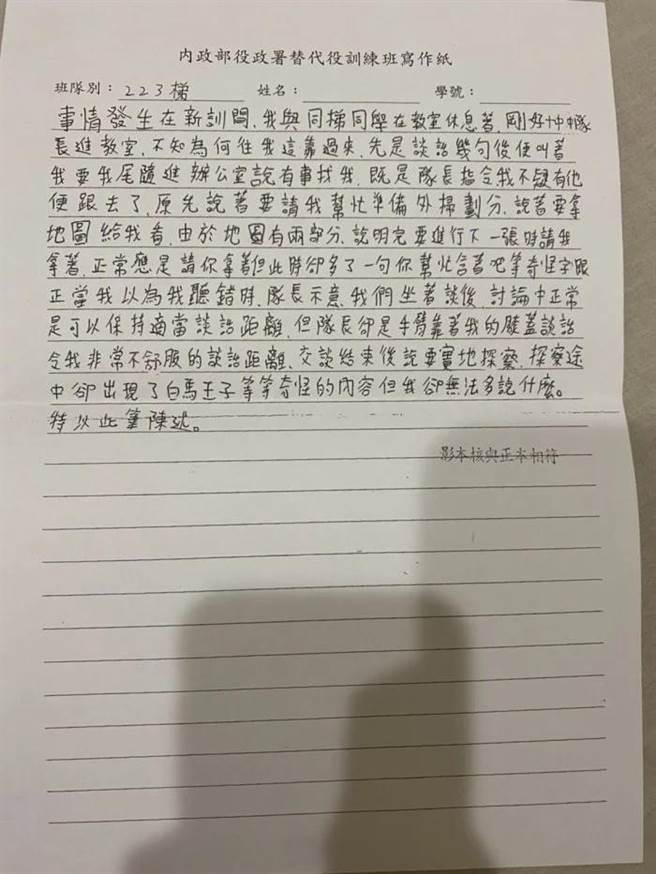 內政部役政署替代役訓練班寫作紙
班隊別：223梯 姓名： 學號：
事情發生在新訓間，我與同梯同學在教室休息著，剛好中隊
長進教室，不知為何往我這靠過來，先是談話幾句後便叫著
我要我尾隨進辦公室說有事找我，既是隊長指令我不疑有他
便跟去了，原先說著要請我幫忙準備外掃劃分，說著要拿
地圖給我看，由於地圖有兩部分，說明完要進行下一張時請我
拿著，正常應是請你拿著但此時卻多了一句你幫忙含著吧等奇怪字眼
正當我以為我聽錯時，隊長示意我們坐著談後，討論中正常
是可以保持適當談話距離，但隊長卻是手臂靠著我的膝蓋談話
令我非常不舒服的談話距離，交談結束後說要實地探察，探察途
中卻出現了白馬王子等等奇怪的內容但我卻無法多說什麼。
特以此筆陳述。
影本核與正本相符